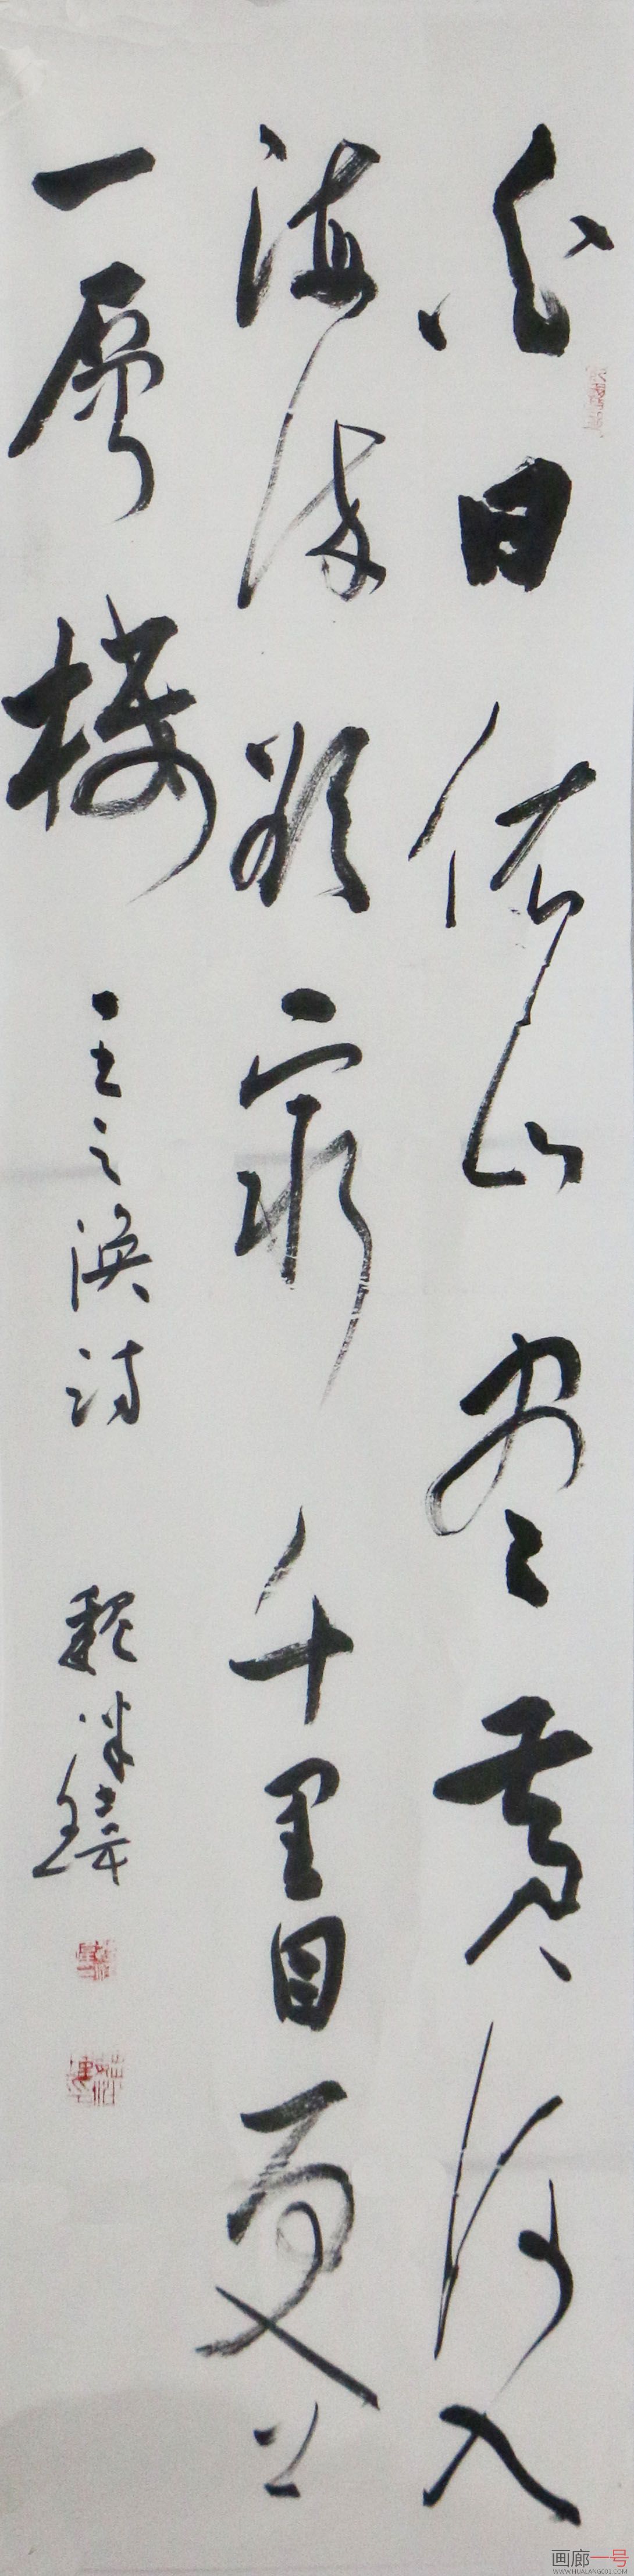 白日依山尽黄河入
海流欲穷千里目更上
一层楼 王之涣诗 魏
画廊一号
WWW.HUALANG001.COM